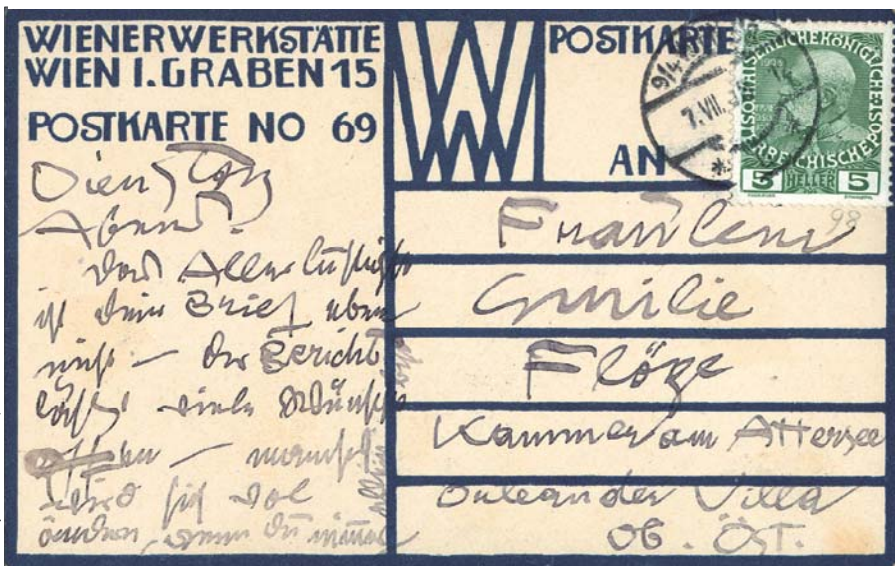 WIENER WERKSTÄTTE
WIEN I. GRABEN 15
POSTKARTE NO 69
Dienstag
Abend!
das Allerlustigste
ist dein Brief eben
nicht — der Bericht
läßt viele Wünsche
offen — manches
wird sich wol
ändern, wenn Du
WW
POSTKARTE
AN
7.VII.
KAISERLICHE KÖNIGLICHE
ÖSTERREICHISCHE POST
5 HELLER 5
98
Fräulein
Emilie
Flöge
Kammer am Attersee
Oleander Villa
OB. ÖST.